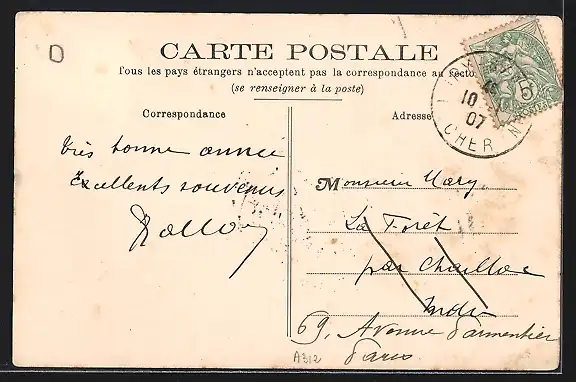 D
CARTE POSTALE
Tous les pays étrangers n'acceptent pas la correspondance au recto
(se renseigner à la poste)
10
07
CHER
5
Correspondance
Adresse
très bonne année
Excellents souvenirs
Monsieur Mary
La Forêt
par Chaillac
Indre
69, Avenue
Paris
A312